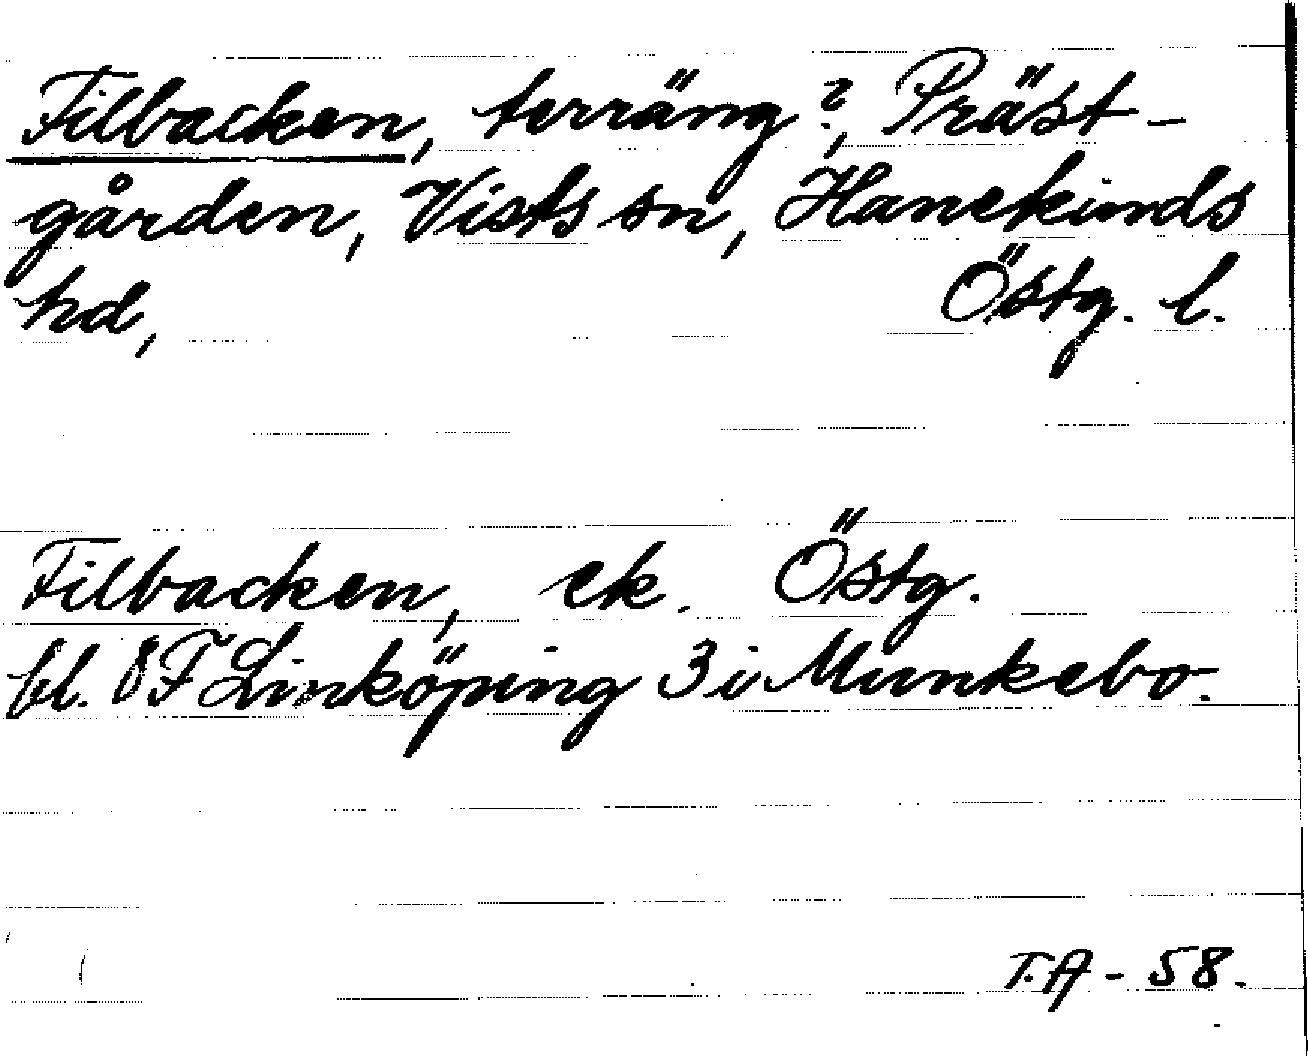 Filbacken, terräng?, Präst-
gården, Vists sn, Hanekinds
hd, Östg. l.
Filbacken, ek. Östg.
bl. 8F Linköping 3i Munkebo.
T.A - 58.